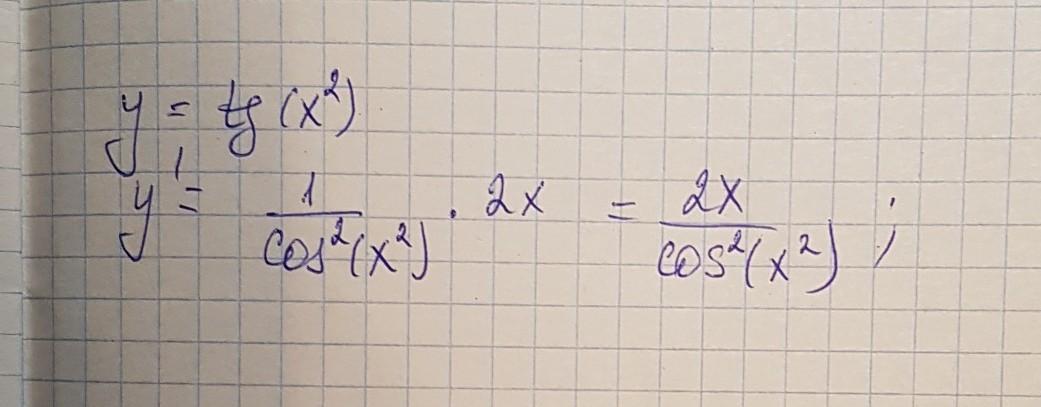 y = tg (x²)
y' = 1/cos²(x²) · 2x = 2x/cos²(x²) ;